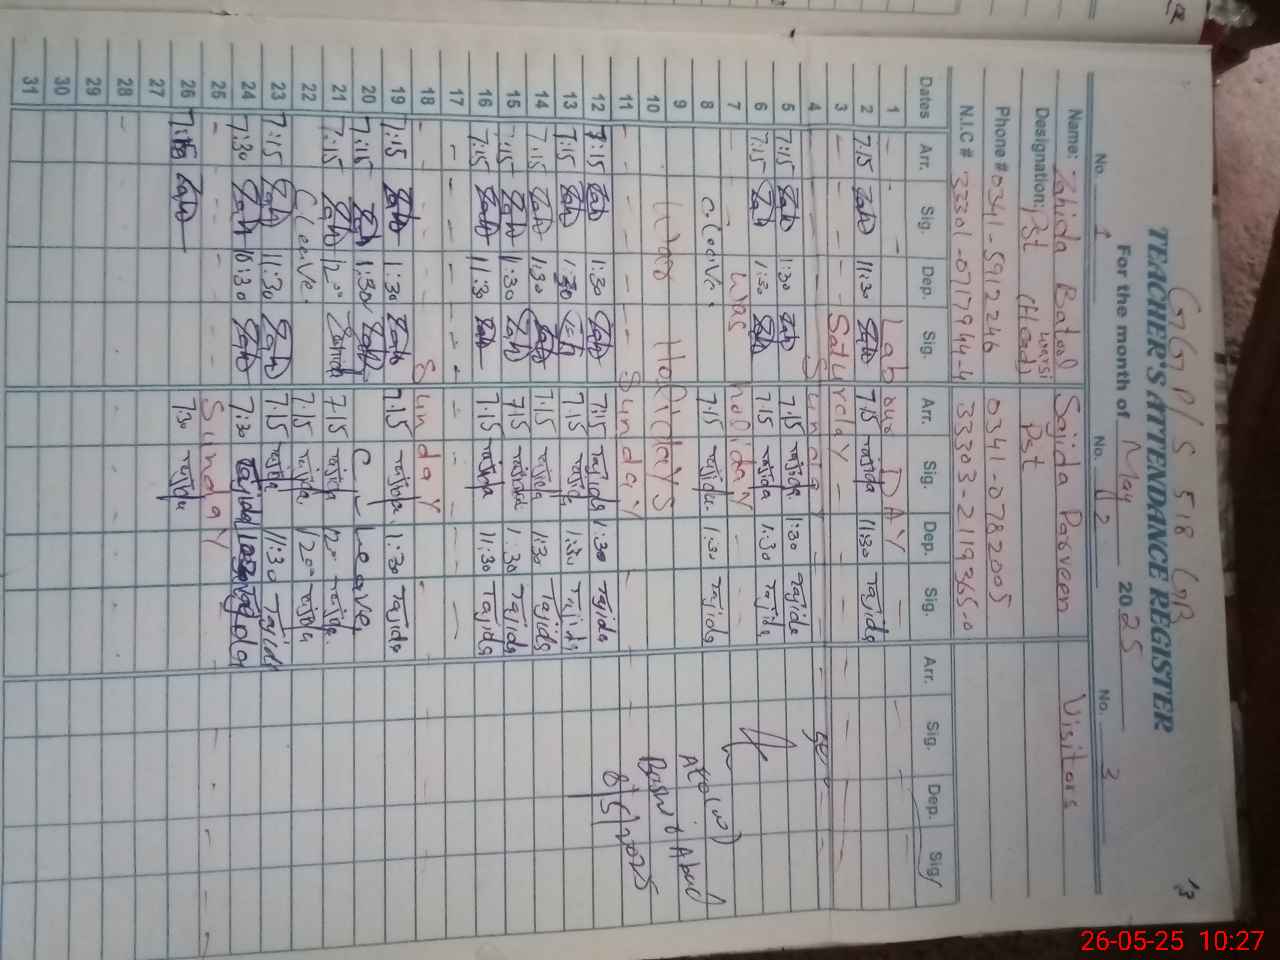 GGP/S 518 GB
13
TEACHER'S ATTENDANCE REGISTER
For the month of May 2025
No. 1 No. 2 No. 3
Name: Zahida Batool Sajida Parveen Visitors
Designation: Pst (Head) Pst
Phone # 0341-5912246 0341-0782005
N.I.C # 33303-2119365-0
Dates Arr. Sig. Dep. Sig. Arr. Sig. Dep. Sig. Arr. Sig. Dep. Sig.
1 Labour DAY
2 7:15 Zah 11:30 Zah 7:15 Sajida 11:30 Sajida
3 Saturday
4 Sunda
5 7:15 Zah 1:30 Zah 7:15 Sajida 1:30 Sajida
6 7:15 Zah 1:30 Zah 7:15 Sajida 1:30 Sajida
7 Was holiday
8 C.Leave. 7:15 Sajida 1:30 Sajida
9
10 Was Holidays
11 Sunday
8/5/2025
12 7:15 Zah 1:30 Zah 7:15 Sajida 1:30 Sajida
13 7:15 Zah 1:30 Zah 7:15 Sajida 1:30 Sajida
14 7:15 Zah 1:30 Zah 7:15 Sajida 1:30 Sajida
15 7:15 Zah 1:30 Zah 7:15 Sajida 1:30 Sajida
16 7:15 Zah 11:30 Zah 7:15 Sajida 11:30 Sajida
17
18 Sunday
19 7:15 Zah 1:30 Zah 7:15 Sajida 1:30 Sajida
20 7:15 Zah 1:30 Zah C Leave
21 7:15 Zah 12:00 Zahida 7:15 Sajida 12:00 Sajida
22 C Leave. 7:15 Sajida 12:00 Sajida
23 7:15 Zah 11:30 Zah 7:15 Sajida 11:30 Sajida
24 7:30 Zah 10:30 Zah 7:30 Sajida
25 Sunday
26 7:15 Zah 7:30 Sajida
27
28
29
30
31
26-05-25 10:27